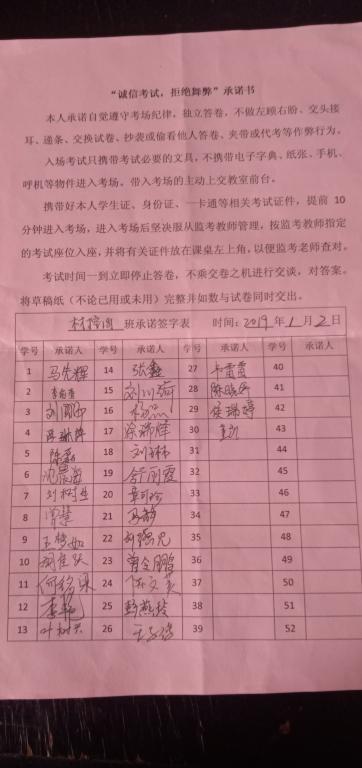 “诚信考试，拒绝舞弊”承诺书
本人承诺自觉遵守考场纪律，独立答卷，不做左顾右盼、交头接
耳、递条、交换试卷、抄袭或偷看他人答卷、夹带或代考等作弊行为。
入场考试只携带考试必要的文具，不携带电子字典、纸张、手机、
呼机等物件进入考场。带入考场的主动上交教室前台。
携带好本人学生证、身份证、一卡通等相关考试证件，提前 10
分钟进入考场，进入考场后坚决服从监考教师管理，按监考教师指定
的考试座位入座，并将有关证件放在课桌左上角，以便监考老师查对。
考试时间一到立即停止答卷，不乘交卷之机进行交谈，对答案。
将草稿纸（不论已用或未用）完整并如数与试卷同时交出。
班承诺签字表 时间：2019年1月2日
学号 承诺人 学号 承诺人 学号 承诺人 学号 承诺人
1 马先辉 14 张鑫 27 卡雷雷 40
2 15 刘川荷 28 陈晓冬 41
3 16 杨 29 侯瑞婷 42
4 17 涂瑞峰 30 43
5 陈磊 18 刘 31 44
6 沈晨海 19 舒雨霞 32 45
7 刘树 20 33 46
8 曾慧 21 马静 34 47
9 王梦如 22 35 48
10 胡佳跃 23 曾全鹏 36 49
11 何铭 24 37 50
12 李艳 25 彭燕玲 38 51
13 叶树 26 39 52